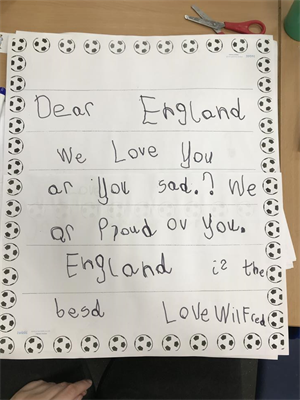 Dear England
We Love You
ar you sad.? We
ar Proud ov You.
England is the
besd Love Wilfred